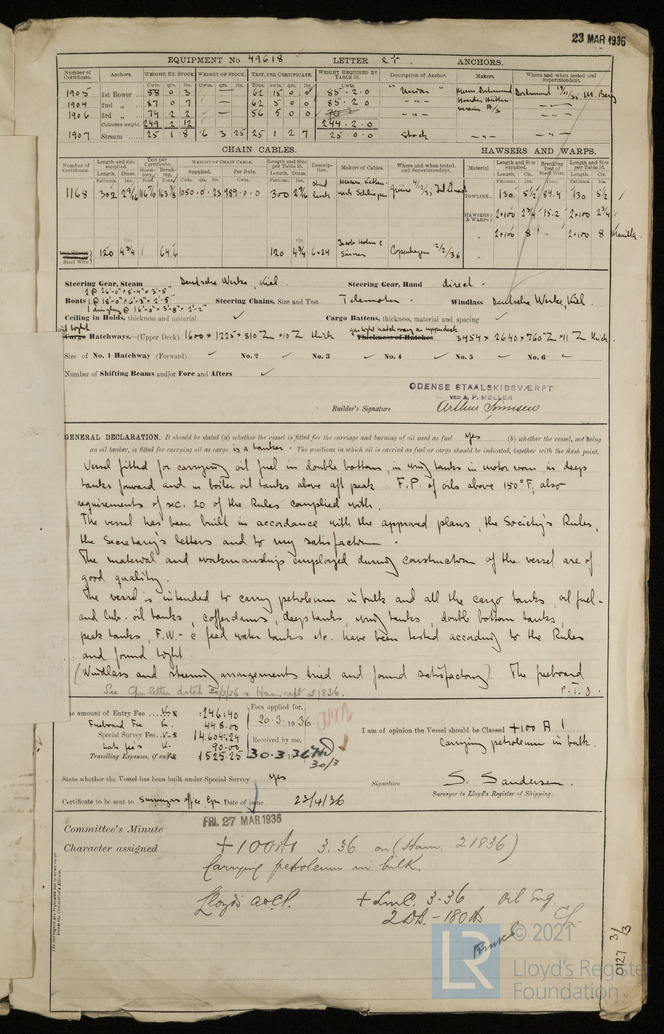 23 MAR 1936
EQUIPMENT No 49618 LETTER ANCHORS.
Number of Certificate. Anchors. WEIGHT, EX. STOCK. WEIGHT OF STOCK. TEST, PER CERTIFICATE. WEIGHT REQUIRED BY TABLE 31. Description of Anchor. Makers. Where and when tested and Superintendent.
1905 1st Bower 88 0 3 62 15 0 0 85.2.0
1904 2nd " 87 0 7 62 5 0 0 85.2.0
1906 3rd " 74 2 2 56 5 0 0
Collective weight 249 2 12 244.2.0
1907 Stream 25 1 8 6 3 25 25 1 2 7 25.0.0 Stock
CHAIN CABLES. HAWSERS AND WARPS.
Number of Certificate. Length and size supplied. Test per Certificate. WEIGHT OF CHAIN CABLE. Length and size per Table 31. Description. Makers of Cables. Where and when tested, and Superintendent. Material Length and Size supplied. Breaking Test of Steel Wire. Length and Size per Table 31.
1168 302 300 TOWLINE 130 5½ 84.4 130 5½
HAWSERS & WARPS 2x100 2¾ 15.2 2x100 2¾
2x100 8 2x100 8 Manilla
Steel Wire 120 4¾ 64.6 120 4¾ 6x24 Jacob Holm & Sønner Copenhagen 12/2/36
Steering Gear, Steam Deutsche Werke, Kiel Steering Gear, Hand direct.
Boats Steering Chains, Size and Test Telemotor Windlass Deutsche Werke, Kiel.
Ceiling in Holds, thickness and material Cargo Battens, thickness, material and spacing
Cargo Hatchways.—(Upper Deck) 1600 x 1225 x 810 x 10 thick Thickness of Hatches 3454 x 2640 x 760 x 11 thick.
Size of No. 1 Hatchway (Forward) No. 2 No. 3 No. 4 No. 5 No. 6
Number of Shifting Beams and/or Fore and Afters
ODENSE STAALSKIBSVÆRFT
VED A. P. MØLLER
Builder's Signature
GENERAL DECLARATION. It should be stated (a) whether the vessel is fitted for the carriage and burning of oil used as fuel yes (b) whether the vessel, not being
an oil tanker, is fitted for carrying oil as cargo is a tanker. The positions in which oil is carried as fuel or cargo should be indicated, together with the flash point.
Vessel fitted for carrying oil fuel in double bottom, in wing tanks in motor room, in deep
tanks forward and in boiler oil tanks above aft peak. F.P. of oils above 150°F, also
requirements of sec. 20 of the Rules complied with.
The vessel has been built in accordance with the approved plans, the Society's Rules,
the Secretary's letters and to my satisfaction.
The material and workmanship employed during construction of the vessel are of
good quality.
The vessel is intended to carry petroleum in bulk and all the cargo tanks, oil fuel-
and lub. oil tanks, cofferdams, deeptanks, wing tanks, double bottom tanks,
peak tanks, F.W.- & feed water tanks etc. have been tested according to the Rules
and found tight.
(Windlass and steering arrangements tried and found satisfactory). The freeboard
P.T.O.
The amount of Entry Fee 246.40 Fees applied for,
Freeboard Fee 448.00 20.3.1936
Special Survey Fee 14.604.24 Received by me,
Late fee's 90.00
Travelling Expenses, if any 1525.25 30.3.36
30/3
I am of opinion the Vessel should be Classed +100 A 1
Carrying petroleum in bulk.
State whether the Vessel has been built under Special Survey yes Signature S. Sandersen.
Surveyor to Lloyd's Register of Shipping.
Certificate to be sent to Surveyors office Date of issue 23/4/36
FRI. 27 MAR 1936
Committee's Minute
Character assigned +100A1 3.36 on (Ham. 21836)
Carrying petroleum in bulk.
Lloyd's A&CP. +LMC. 3.36 Oil Eng
2DB.-180 lb
© 2021
LR
Lloyd's Register
Foundation
0127 3/3